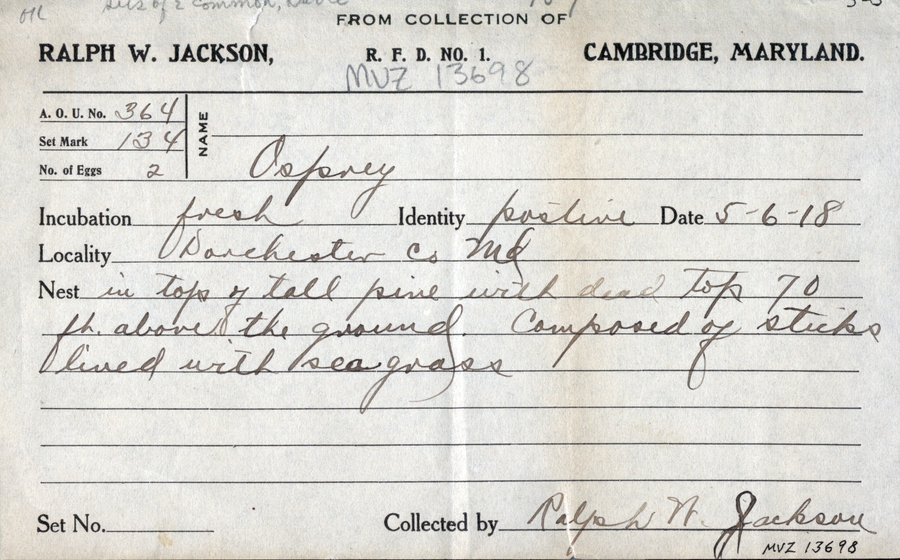 Sets of 2 common,
FROM COLLECTION OF
RALPH W. JACKSON, R. F. D. NO. 1. CAMBRIDGE, MARYLAND.
MVZ 13698
A. O. U. No. 364
Set Mark 134
No. of Eggs 2
NAME Osprey
Incubation fresh Identity postive Date 5-6-18
Locality Dorchester Co Md
Nest in top of tall pine with dead top 70
ft. above the ground. Composed of sticks
lined with sea grass
Set No. Collected by Ralph W. Jackson
MVZ 13698